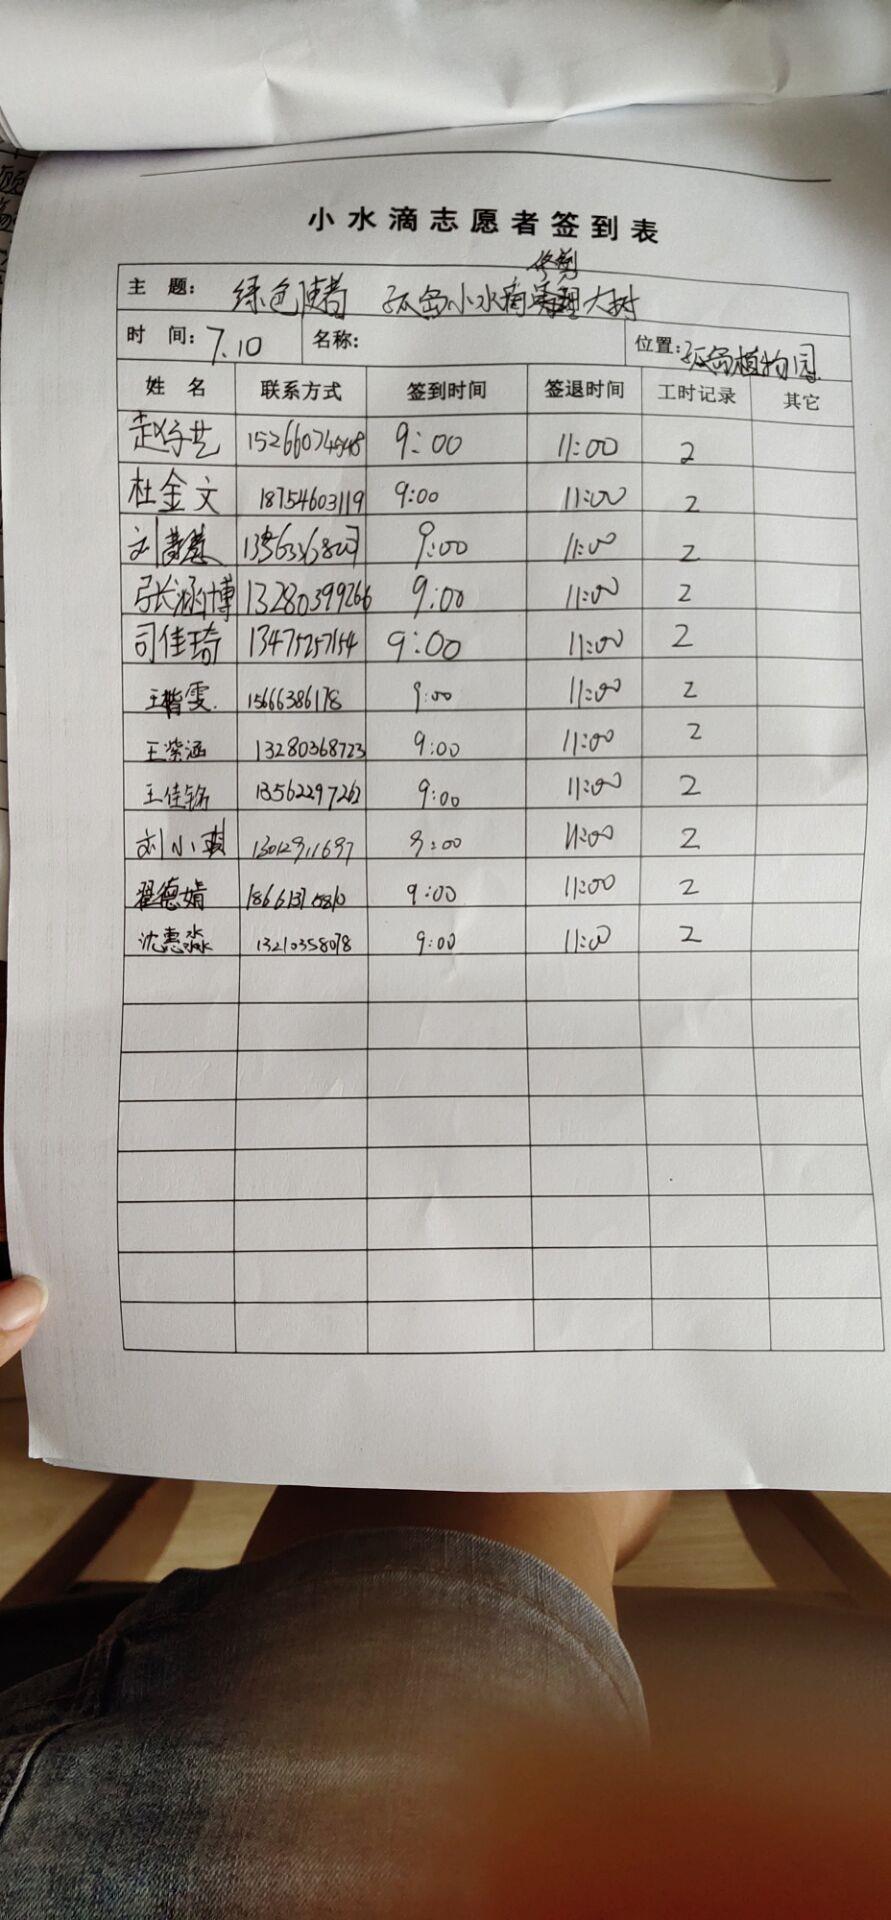 小水滴志愿者签到表
修剪
主 题： 绿色使者 孤岛小水滴大树
时 间：7.10 名称： 位置：孤岛植物园
姓 名 联系方式 签到时间 签退时间 工时记录 其它
9:00 11:00 2
杜金文 18754603119 9:00 11:00 2
9:00 11:00 2
张涵博 13280399266 9:00 11:00 2
司佳琦 13475257154 9:00 11:00 2
15666386178 9:00 11:00 2
王紫涵 13280368723 9:00 11:00 2
王佳铭 13562297262 9:00 11:00 2
刘小琪 9:00 11:00 2
翟德婧 9:00 11:00 2
沈惠淼 13210358078 9:00 11:00 2